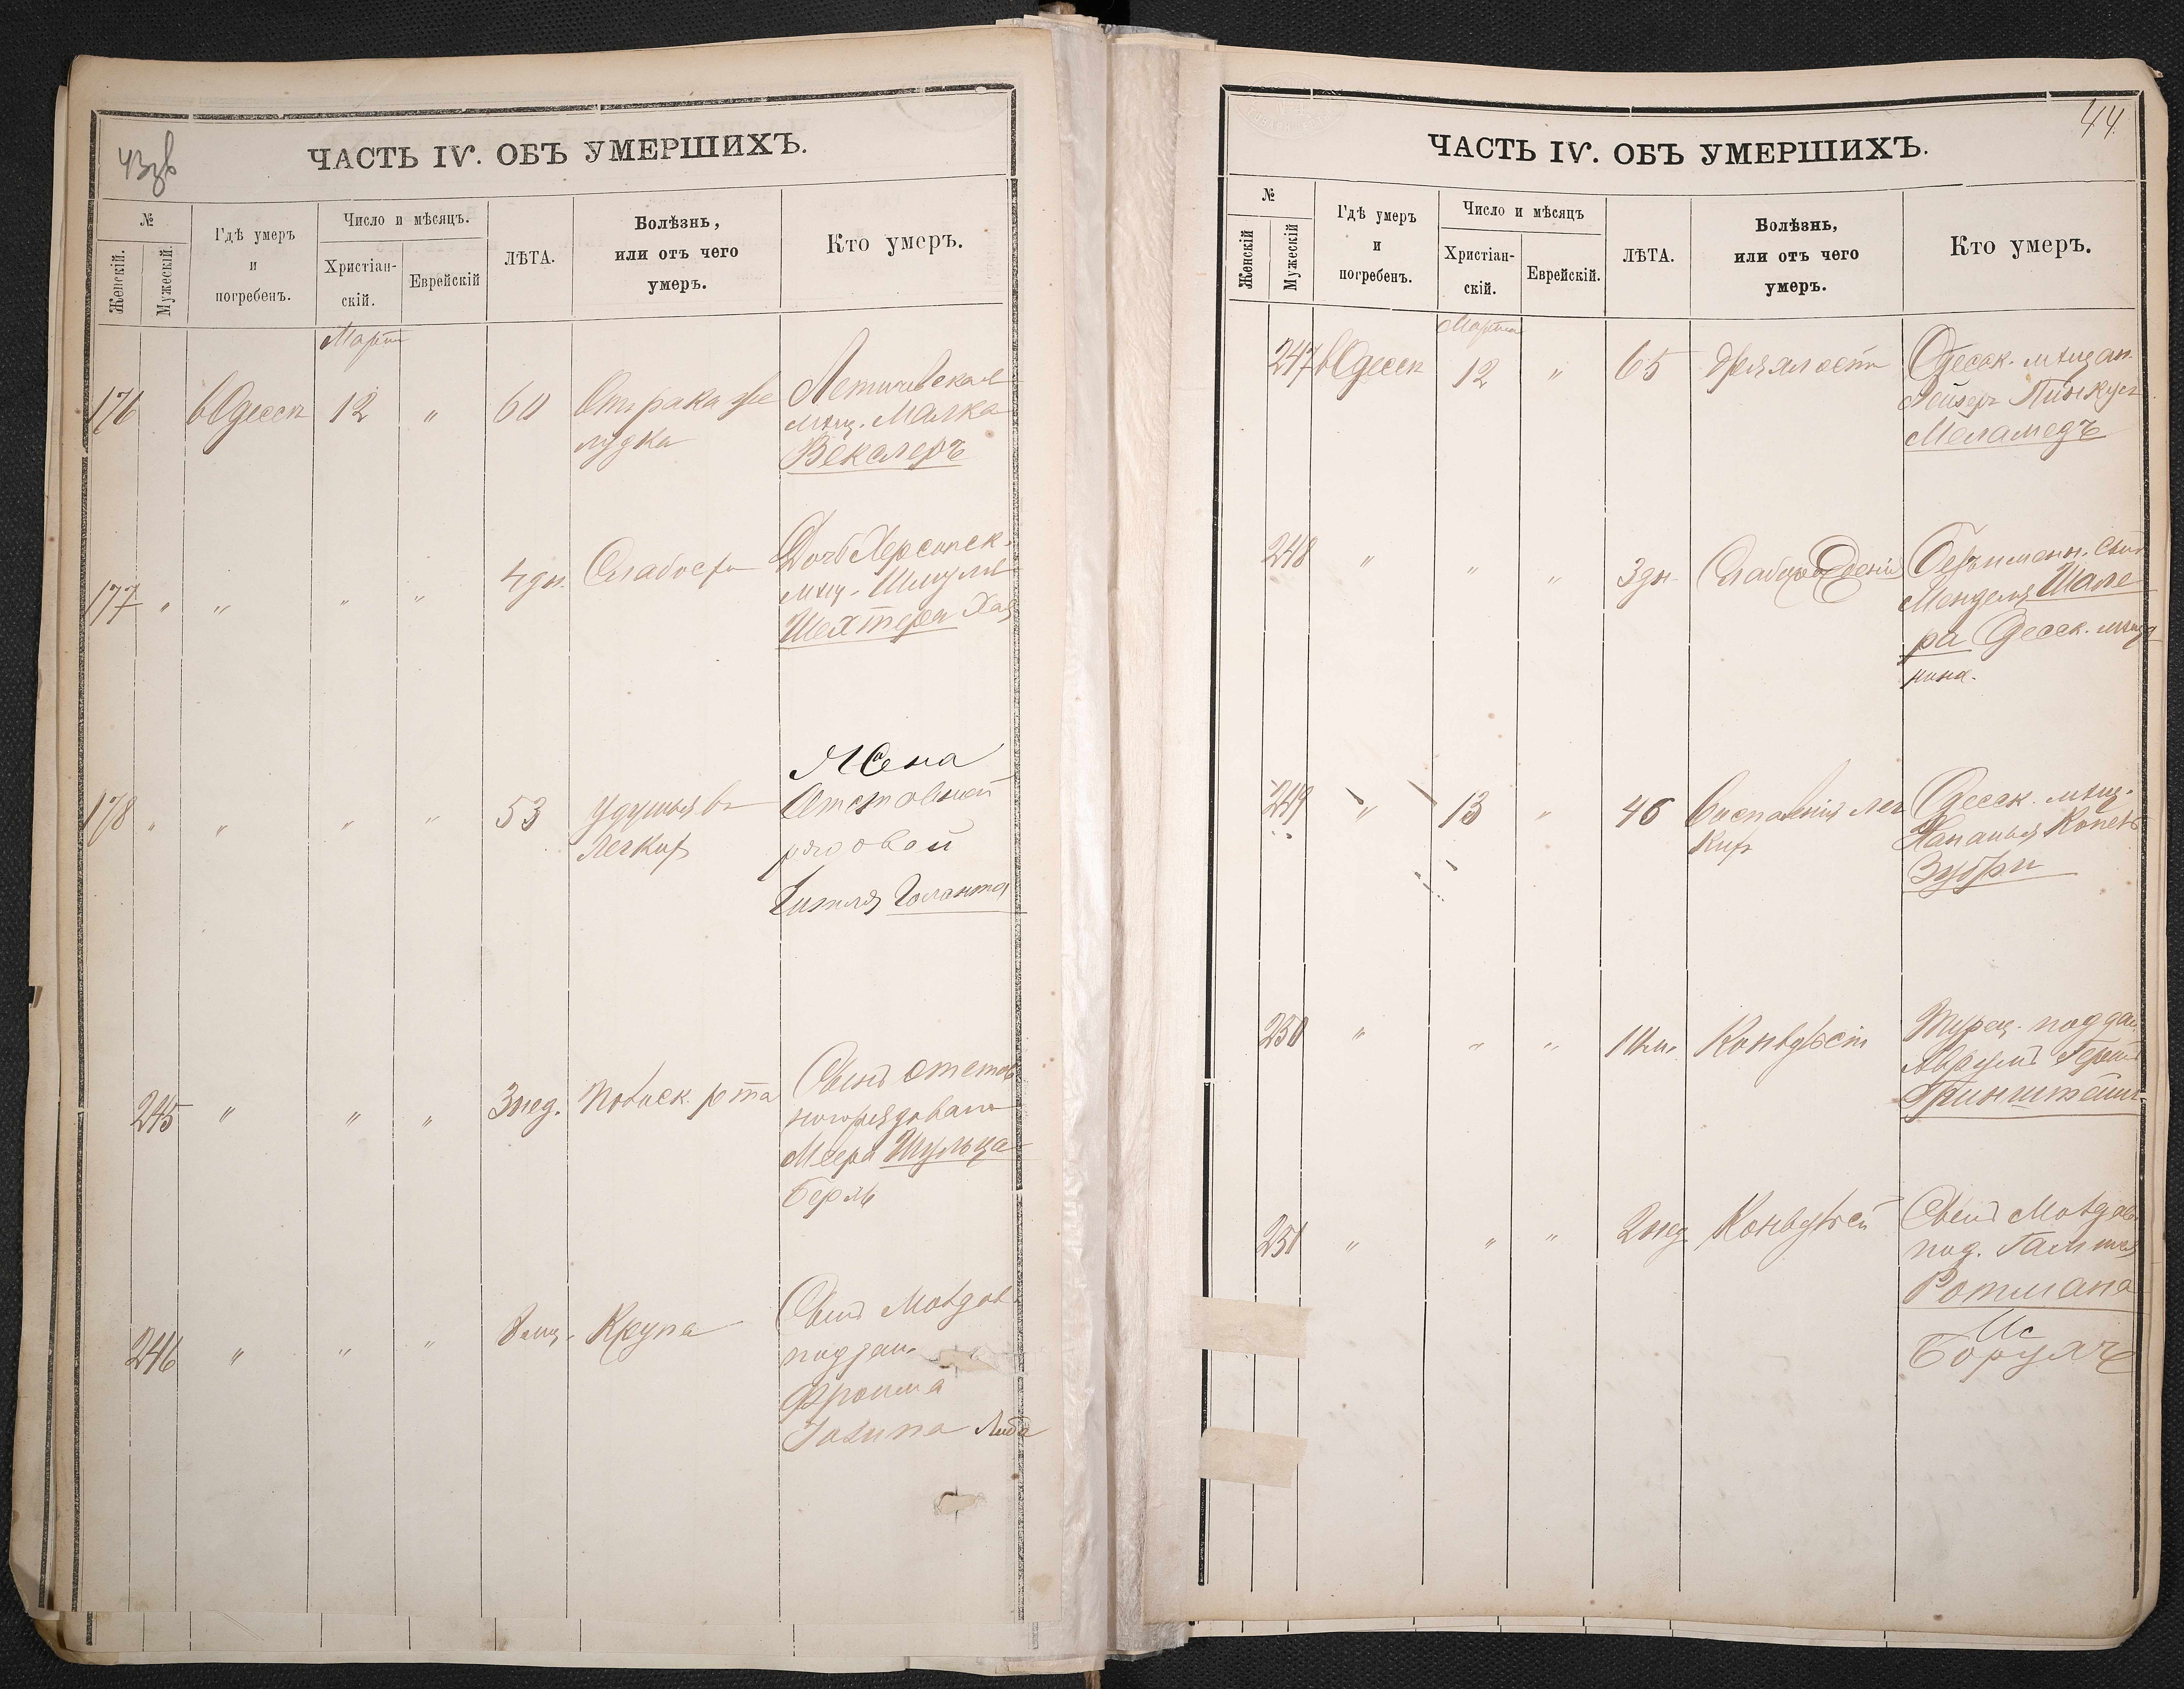 43об
ЧАСТЬ IV. ОБЪ УМЕРШИХЪ.
№
Женскій.
Мужескій.
Гдѣ умеръ
и
погребенъ.
Число и мѣсяцъ.
Христіан-
скій.
Еврейскій
ЛѢТА.
Болѣзнь,
или отъ чего
умеръ.
Кто умеръ.
Марта
176 вОдессѣ 12 " 60 Отъ рака же
лудка
Летичевская
мѣщ. Малка
Векслеръ
177 " " " " 4 дн. Слабости
Дочь Херсонск.
мѣщ. Шмуля
Шехтера Хая
178 " " " " 53 Удушья въ
Легкихъ
Жена
Отставной
рядовой
Голанта
245 " " " 3 нед. рта
Сынъ отстав
ного рядоваго
Меера Шульца
Беръ
246 " " " мѣц. Крупа
Сынъ Молдав
поддан.
Фроима
44.
ЧАСТЬ IV. ОБЪ УМЕРШИХЪ.
№
Женскій
Мужескій
Гдѣ умеръ
и
погребенъ.
Число и мѣсяцъ
Христіан-
скій.
Еврейскій.
ЛѢТА.
Болѣзнь,
или отъ чего
умеръ.
Кто умеръ.
Марта
247 вОдессѣ 12 " 65 Дряхлости
Одесск. мѣщан.
Лейзеръ Пинкус
Меламедъ
248 " " " 3 дн.
Безъимен. сынъ
Менделя Шапи
ра Одесск. мѣща
нина.
249 " 13 " 46 Воспаленія лег
кихъ
Одесск. мѣщ.
Хананья Копель
250 " " " Конвульсіи
Турец. поддан.
Аврумъ Гершъ
Гринштейнъ
251 " " " 2 нед Конвульсіи
Сынъ Молдав.
под.
Ротмана
Ис
Борухъ